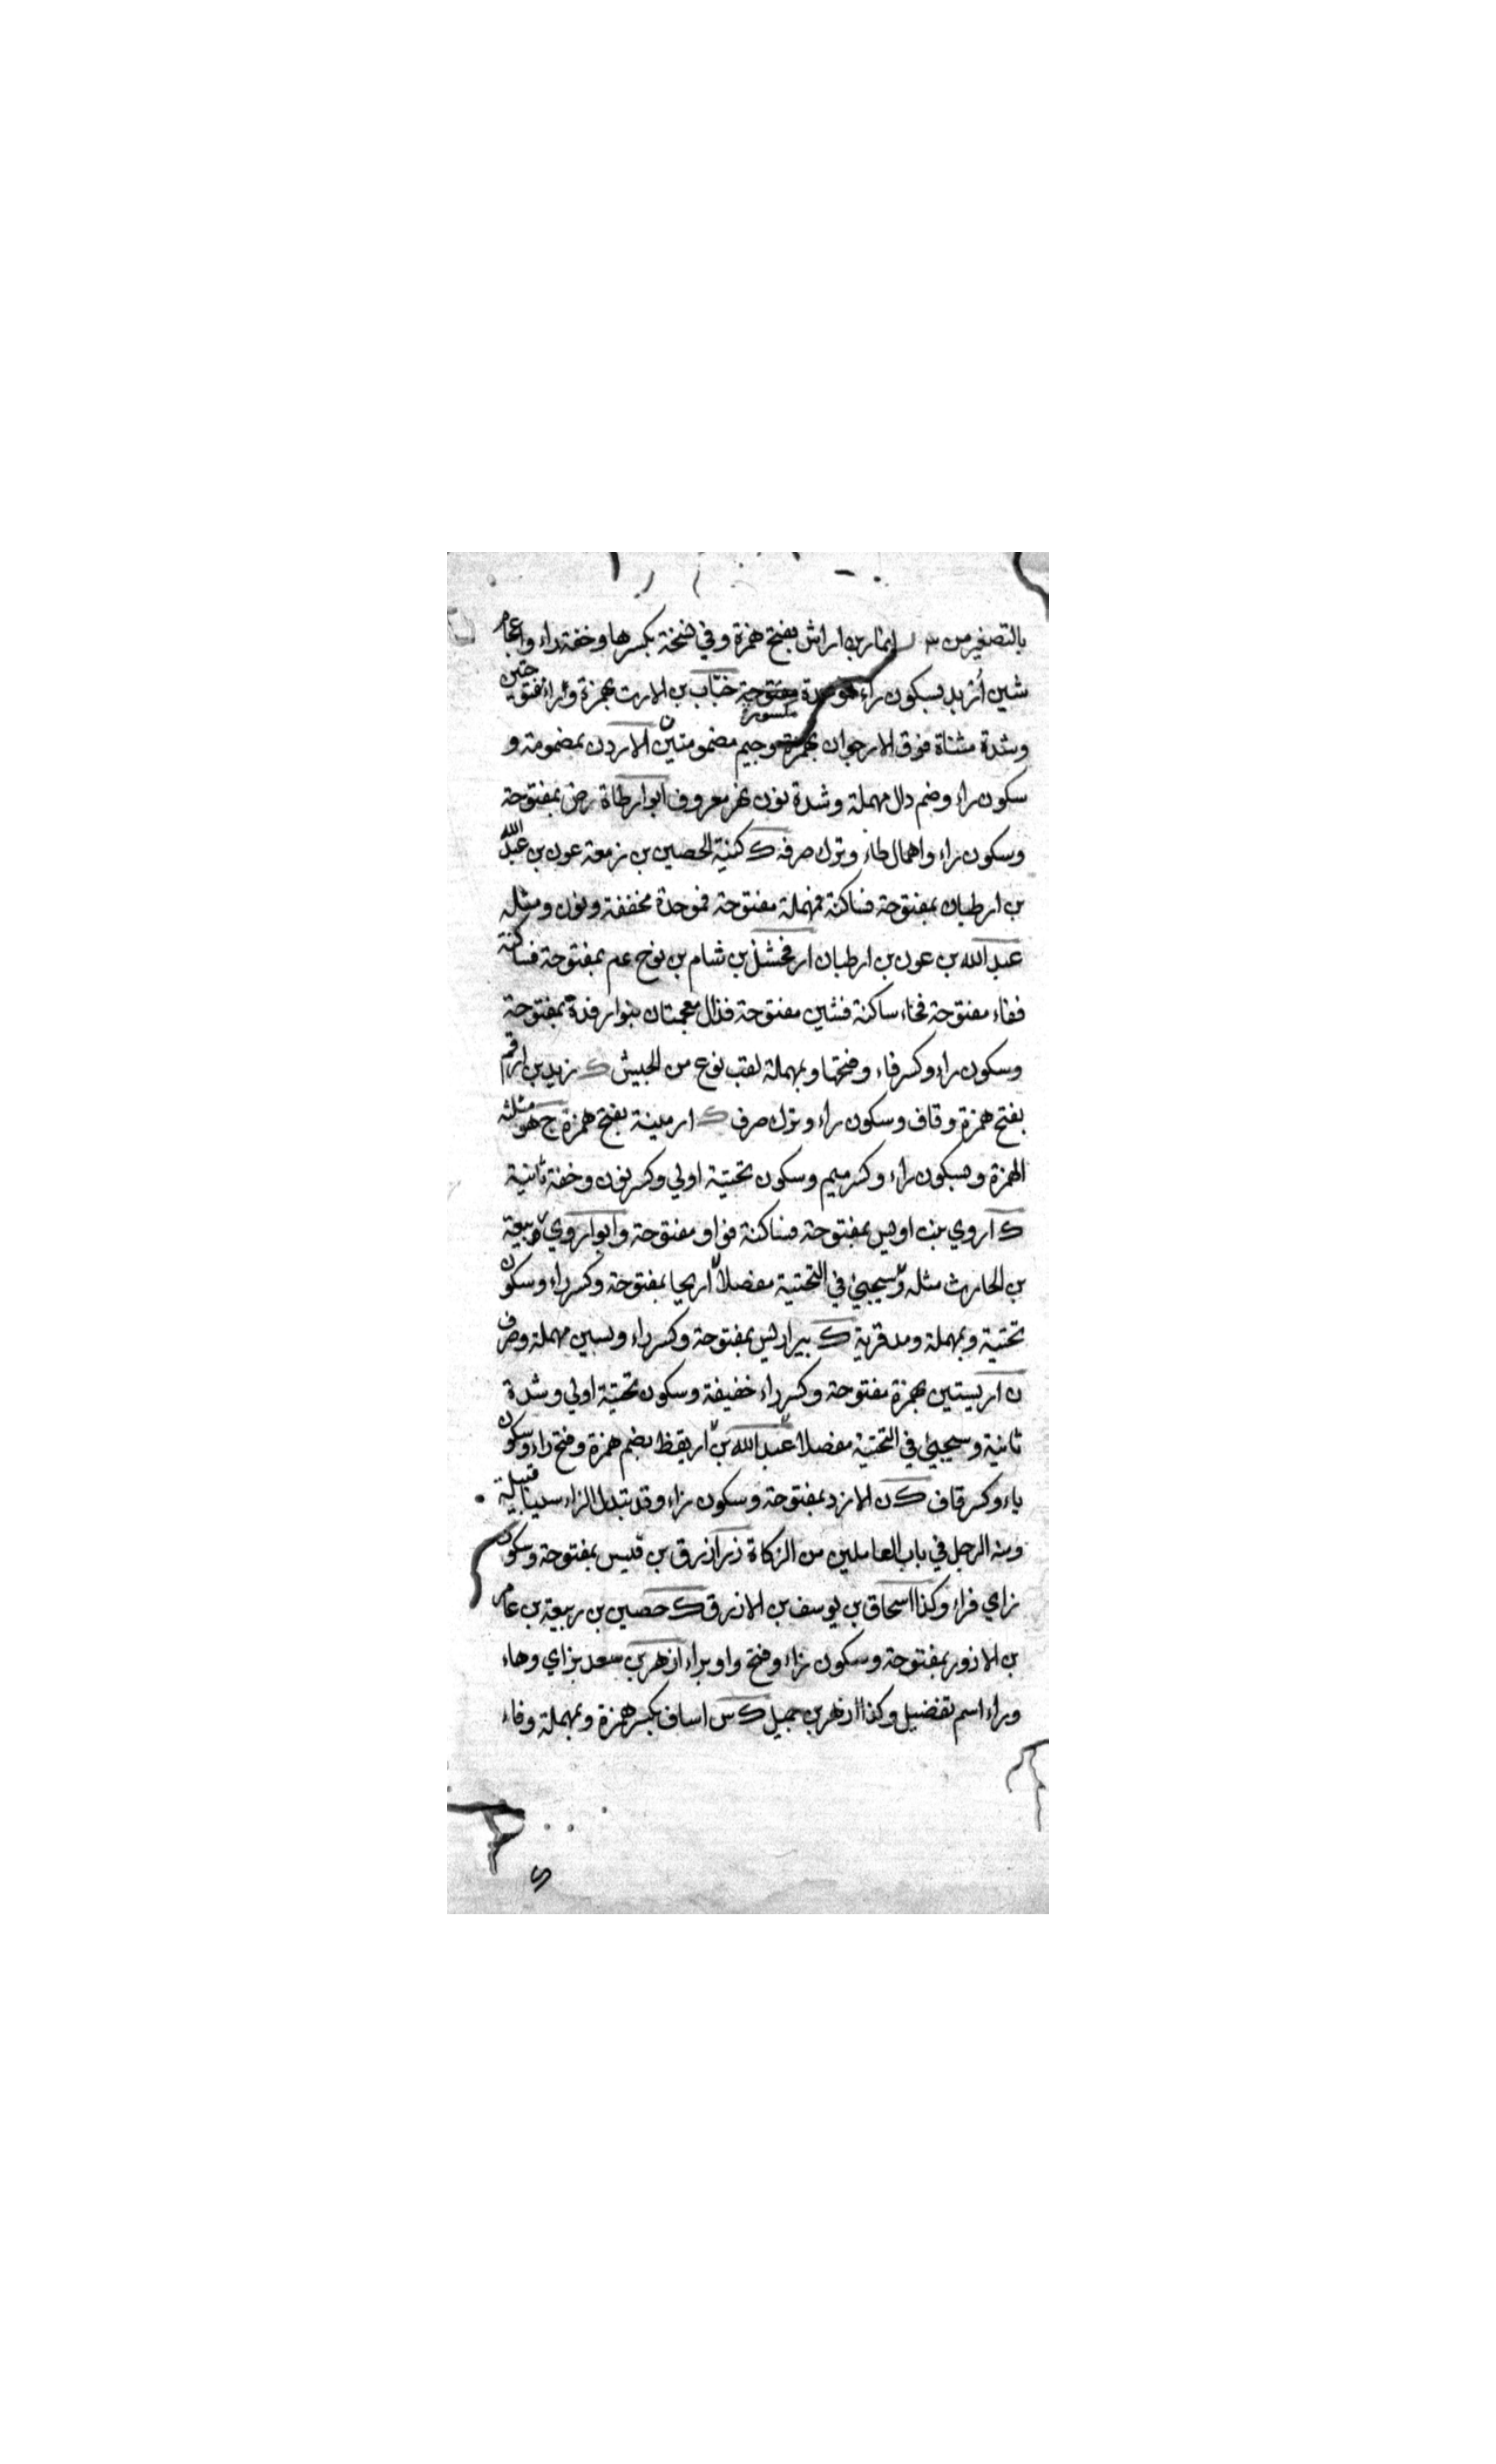 بالتصغير من انمار بن اراش بفتح همزة وفي نسخة بكسرها وخفة راء واعجام
شين أربد بسكون راء موحدة مفتوحة مكسورة خباب بن الارت بهمزة وراء مفتوحتين
وشدة مثناة فوق الارجوان بهمزة وجيم مضمومتين ن الاردن بمضمومة و
سكون راء وضم دال مهملة وشدة نون نهر معروف ابو ارطاة رض بمفتوحة
وسكون راء واهمال طاء وترك صرفه ك كنية الحصين بن زمعة عون بن عبد الله
بن ارطبان بمفتوحة فساكنة فمهملة مفتوحة فموحدة مخففة ونون ومثله
عبد الله بن عون بن ارطبان ارفخشذ بن شام بن نوح عم بمفتوحة فساكنة
ففاء مفتوحة فخاء ساكنة فشين مفتوحة فذال معجمتان بنو ارفدة بمفتوحة
وسكون راء وكسر فاء وفتحها وبمهملة لقب نوع من الحبيش ك زيد بن ارقم
بفتح همزة وقاف وسكون راء وترك صرف ك ارمينة بفتح همزة ج هو مثلثة
الهمزة وبسكون راء وكسر ميم وسكون تحتية اولي وكسر نون وخفة ثانية
ك اروي بنت اويس بمفتوحة فساكنة فواو مفتوحة وابو اروي ربيعة
بن الحارث مثله وسيجيئ في التحتية مفصلا اريحا بمفتوحة وكسر راء وسكون
تحتية وبمهملة ومد قرية ك بير اريس بمفتوحة وكسر راء وبسين مهملة وصرف
ن اريستين بهمزة مفتوحة وكسر راء خفيفة وسكون تحتية اولي وشدة
ثانية وسيجيئ في التحتية مفصلا عبد الله بن اريقظ بضم همزة وفتح راء وسكون
ياء وكسر قاف ك ن الازد بمفتوحة وسكون زاء وقد تبدل الزاء سينا قبيلة
ومنه الرجل في باب العاملين من الزكاة زر ازرق بن قيس بمفتوحة وسكون
زاي فراء وكذا اسحاق بن يوسف بن الازرق ك حصين بن ربيعة بن عامر
بن الازور بمفتوحة وسكون زاء وفتح واو براء ازهر بن سعد بزاي وهاء
وراء اسم تفضيل وكذا ازهر بن جميل ك س اساف بكسر همزة وبمهملة وفاء